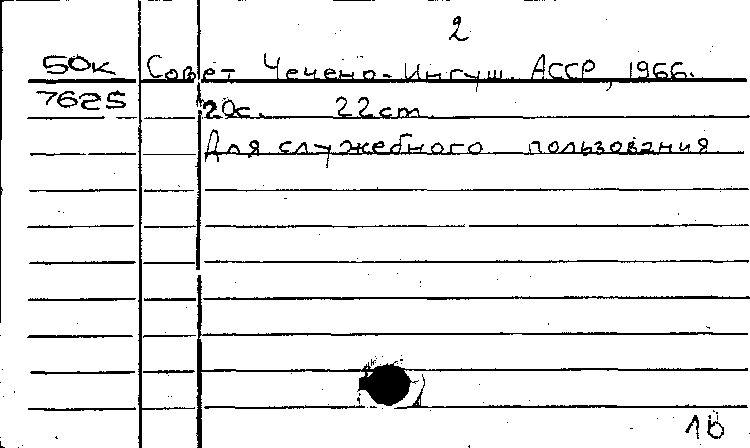 2
50к Совет Чечено-Ингуш. АССР, 1966.
7625 20с. 22cm
Для служебного пользования
1б